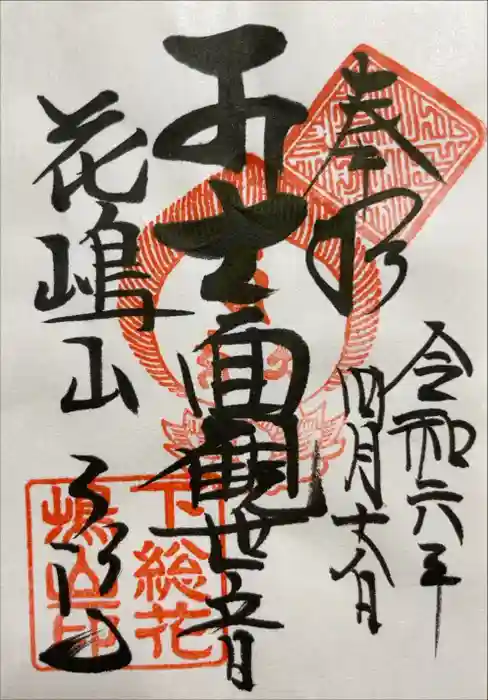 奉拝
令和六年
四月十八日
十一面観世音
花嶋山
下総花
嶋山印